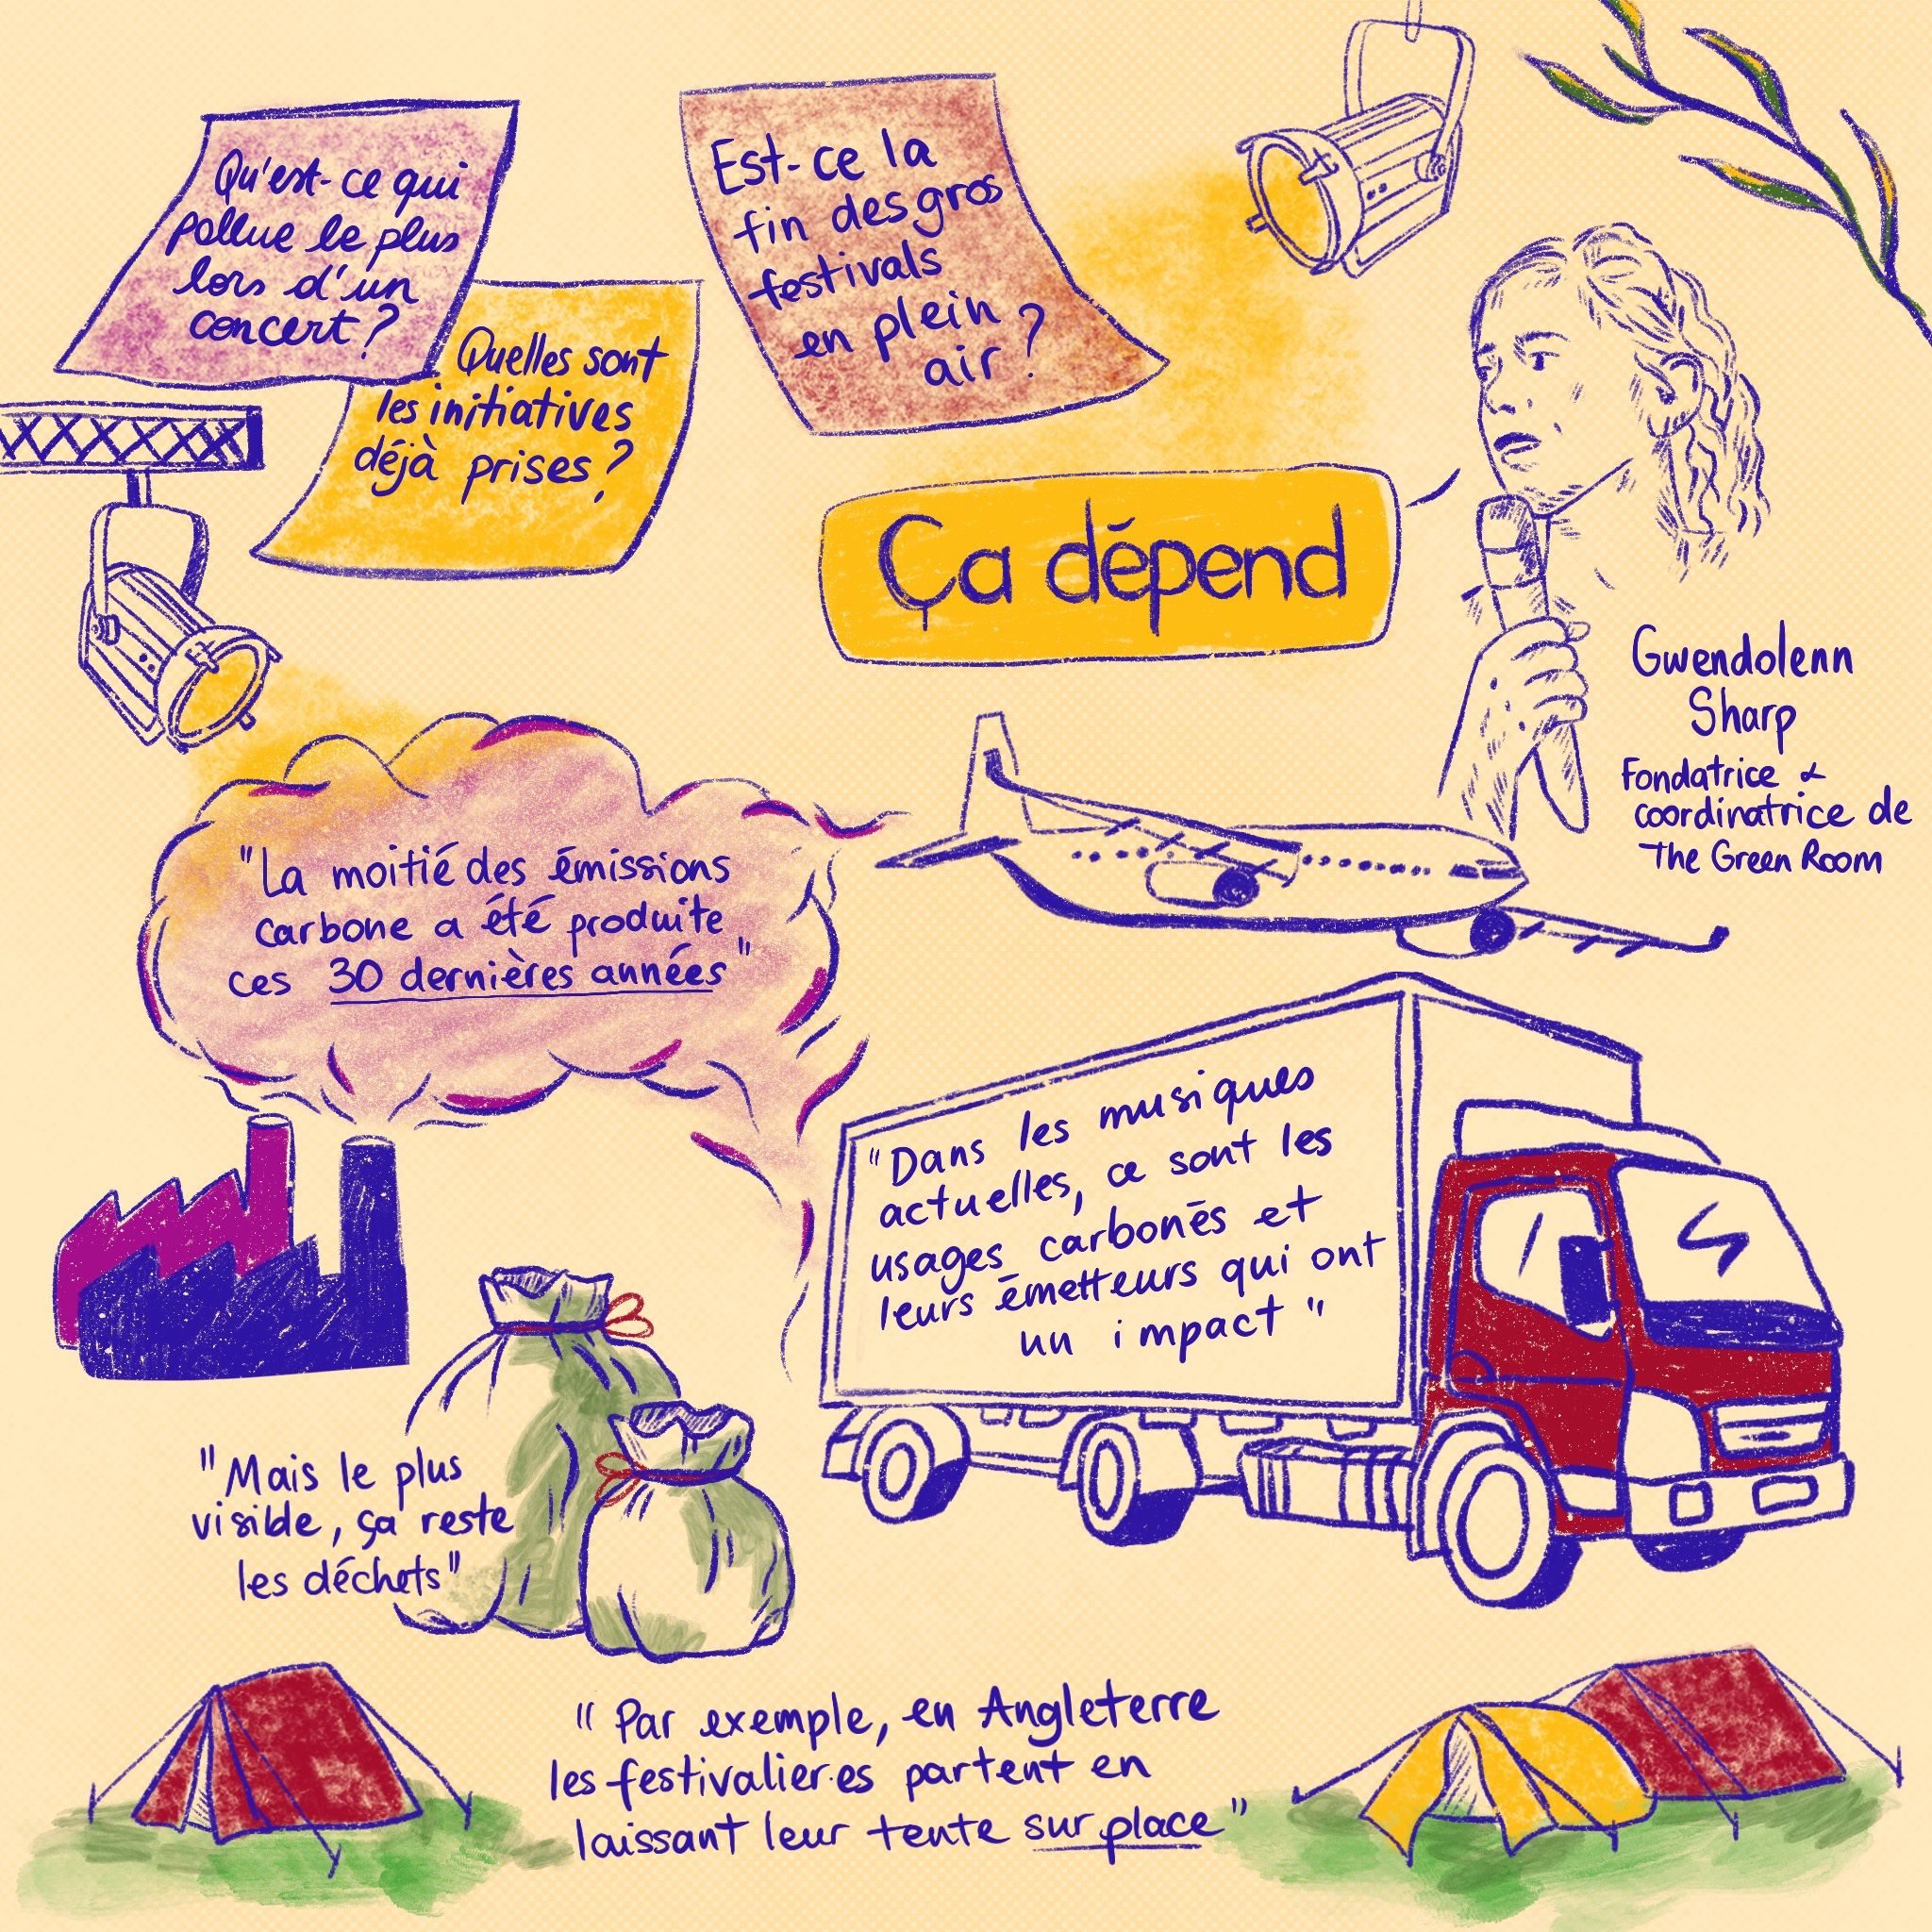 Qu'est-ce qui
pollue le plus
lors d'un
concert?
Quelles sont
les initiatives
déjà prises?
Est-ce la
fin des gros
festivals
en plein
air?
Ça dépend
Gwendolenn
Sharp
Fondatrice &
coordinatrice de
The Green Room
"La moitié des émissions
carbone a été produite
ces 30 dernières années"
"Dans les musiques
actuelles, ce sont les
usages carbonés et
leurs émetteurs qui ont
un impact"
"Mais le plus
visible, ça reste
les déchets"
"Par exemple, en Angleterre
les festivalier·es partent en
laissant leur tente sur place"